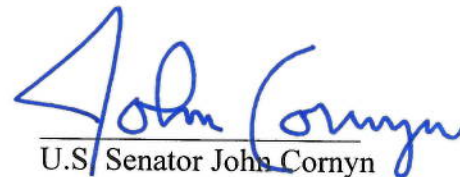 John Cornyn
U.S. Senator John Cornyn